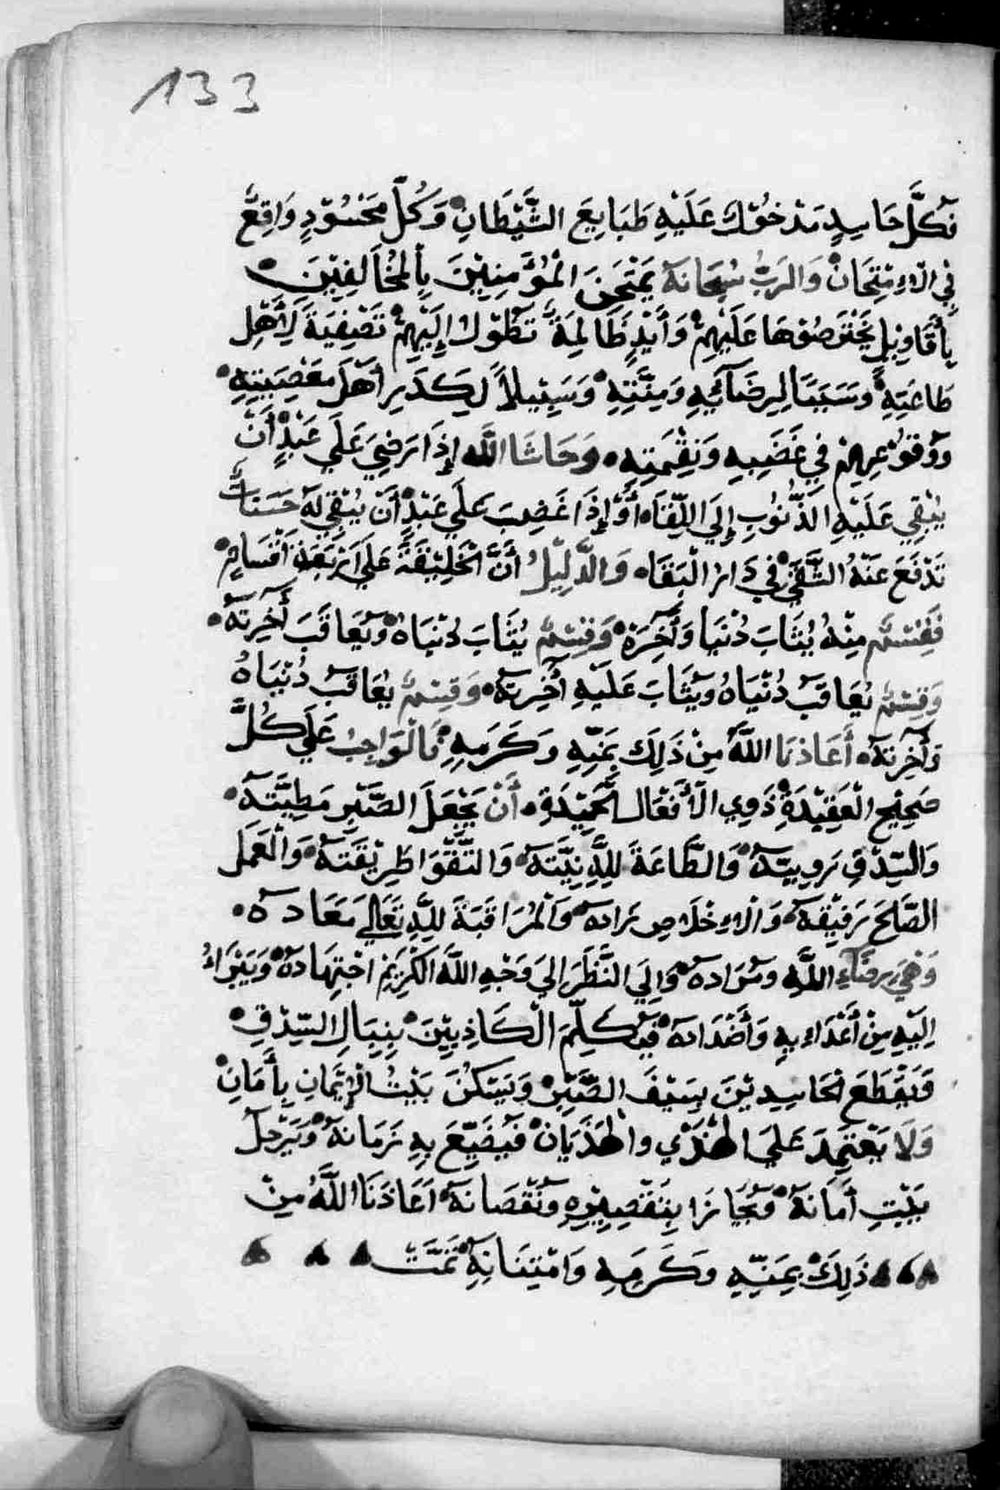 133
فَكُلَّ حَاسِدٍ مَدْخُوْلْ عَلَيْهِ طَبَايِعَ الشَّيْطَانِ وَكُلِّ مَحْسُوْدٍ وَاقِعٌ
فِي الْاِمْتِحَانْ وَالرَبُّ سُبْحَانَهُ يَمْتَحِنَ الْمُؤْمِنِيْنَ بِالْمُخَالِفِيْنَ
بِأَقَاوِيْلٍ يَخْتَرِصُوْهَا عَلَيْهِمْ وَأَيْدٍ ظَالِمَةً تَطُوْلُ إِلَيْهِمْ تَصْفِيَةً لِأَهْلِ
طَاعَتِهِ وَسَبَبًا لِرِضَائِهِ وَمِنَّتِهِ وَسَبِيْلاً لِكَدَرِ أَهْلَ مَعْصِيَتِهِ
وَوُقُوْعِهِمْ فِي غَضَبِهِ وَنِقْمَتِهِ وَحَاشَا اللَّه إِذَا رَضِيَ عَلَى عَبْدٍ أَنْ
يُبْقِي عَلَيْهِ الذُّنُوْبِ إِلَى اللِّقَاه أَوْ إِذَا غَضِبَ عَلَى عَبْدٍ أَنْ يُبْقِي لَهُ حَسَنَاتٌ
تَدْفَعَ عَنْهُ الشَّقَىْ فِي دَارِ الْبَقَاه وَالدَّلِيْلُ أَنَّ الْخَلِيْقَةَ عَلَى اَرْبَعَةْ اَقْسَامٍ
فَقِسْمٌ مِنْهُ يُثَابَ دُنْيَا وَأَخِرَةْ وَقِسْمٌ يُثَابَ دُنْيَاهُ وَيُعَاقَبَ أَخِرَتَهُ
وَقِسْمٌ يُعَاقَبْ دُنْيَاهُ وَيُثَابَ عَلَيْهِ أَخِرَتَهُ وَقِسْمٌ يُعَاقَبْ دُنْيَاهُ
وَأَخِرَتَهُ أَعَاذَنَا اللَّهُ مِنْ ذَلِكَ بِمَنِّهِ وَكَرَمِهِ فَالْوَاجِبْ عَلَى كُلِّ
صَحِيْحِ الْعَقِيْدَةِ ذَوِي الْأَفْعَالِ الْحَمِيْدَةِ أَنْ يَجْعَلَ الصَّبْرِ مَطِيَّتَهُ
وَالصِّدْقِ رَوِيَّتَهُ وَالطَّاعَةَ لِلَّهِ نِيَّتَهُ وَالتَّقْوَا طَرِيْقَتَهُ وَالْعَمَلِ
الصَّالِحَ رَفِيْقَهُ وَالْاِخْلَاصِ زَادَهُ وَالْمُرَاقَبَةَ لِلَّهِ تَعَالَى مَعَادَهُ
وَفِي رِضَاءِ اللَّهِ وَمُرَادَهُ وَإِلَى النَّظَرَ إِلَى وَجْهِ اللَّهَ الْكَرِيْمْ اجْتِهَادَهُ وَيَبْرَاءُ
إِلَيْهِ مِنْ أَعْدَاءِهِ وَأَضْدَادَهُ فَيُكَلِّمَ الْكَاذِبِيْنَ بِنِبَالِ الصِّدْقِ
وَيَقْطَعَ الْحَاسِدِيْنَ بِسَيْفَ الصَّبْرِ وَيَسْكُنَ بَيْتَ الْإِيْمَانِ بِأَمَانْ
وَلَا يَعْتَمِدَ عَلَى الْهَذْي وَالْهَذَيَانْ فَيُضَيِّعَ بِهِ زَمَانَهُ وَيَرْحَلَ
بَيْتِ أَمَانَهُ وَيُجَازَا بِتَقْصِيْرِهِ وَنُقْصَانَهُ اَعَاذَنَا اللَّهُ مِنْ
ذَلِكَ بِمَنِّهِ وَكَرَمِهِ وَامْتِنَانِهِ تَمَّتْ